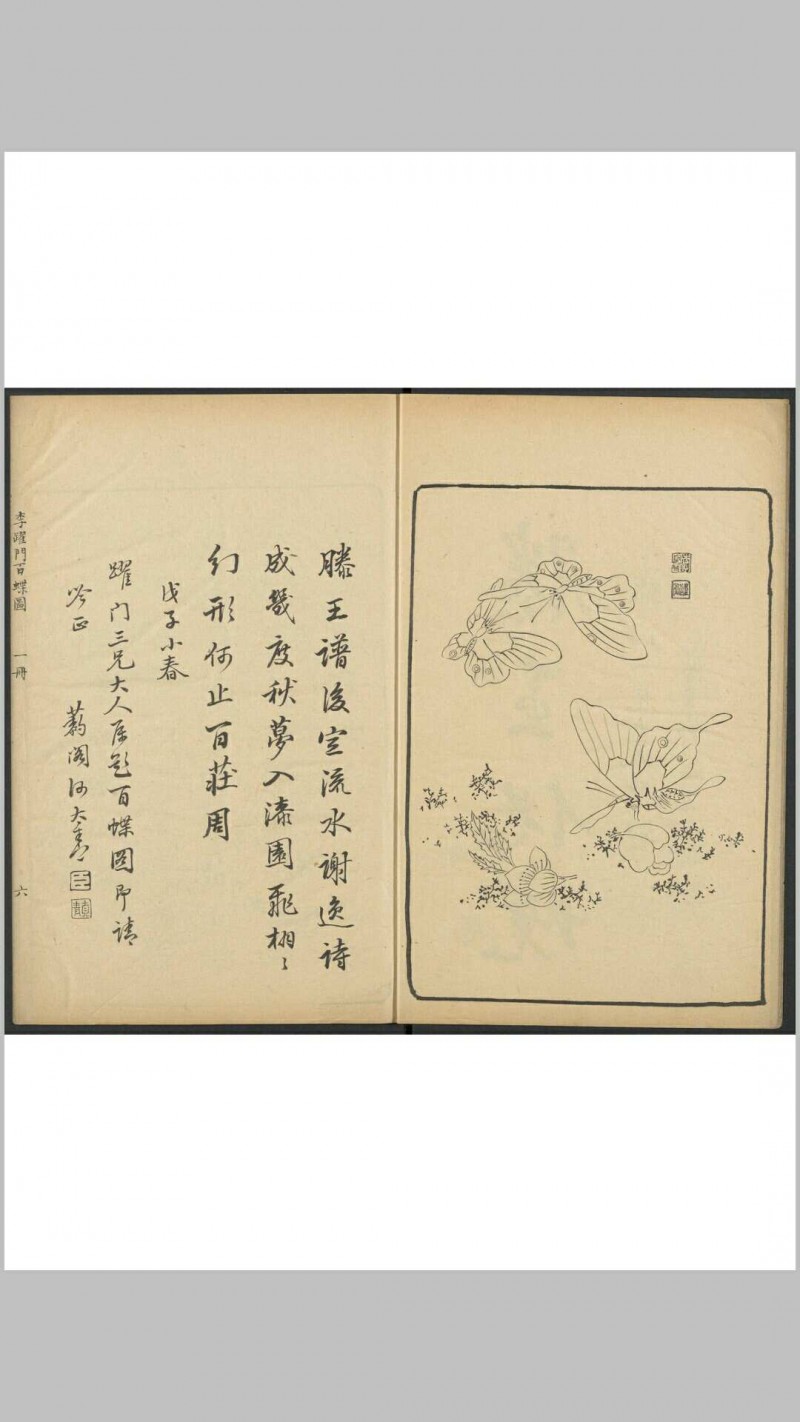 滕王譜後空流水謝逸詩
成幾度秋夢入漆園飛栩〻
幻形何止百莊周
戊子小春
躍门三兄大人属题百蝶圖即請
吟正
李躍門百蝶圖 一冊 六